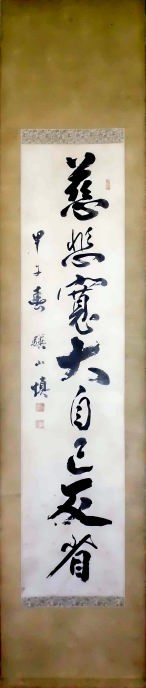 慈悲寛大自己反省
甲子春 頭山慎